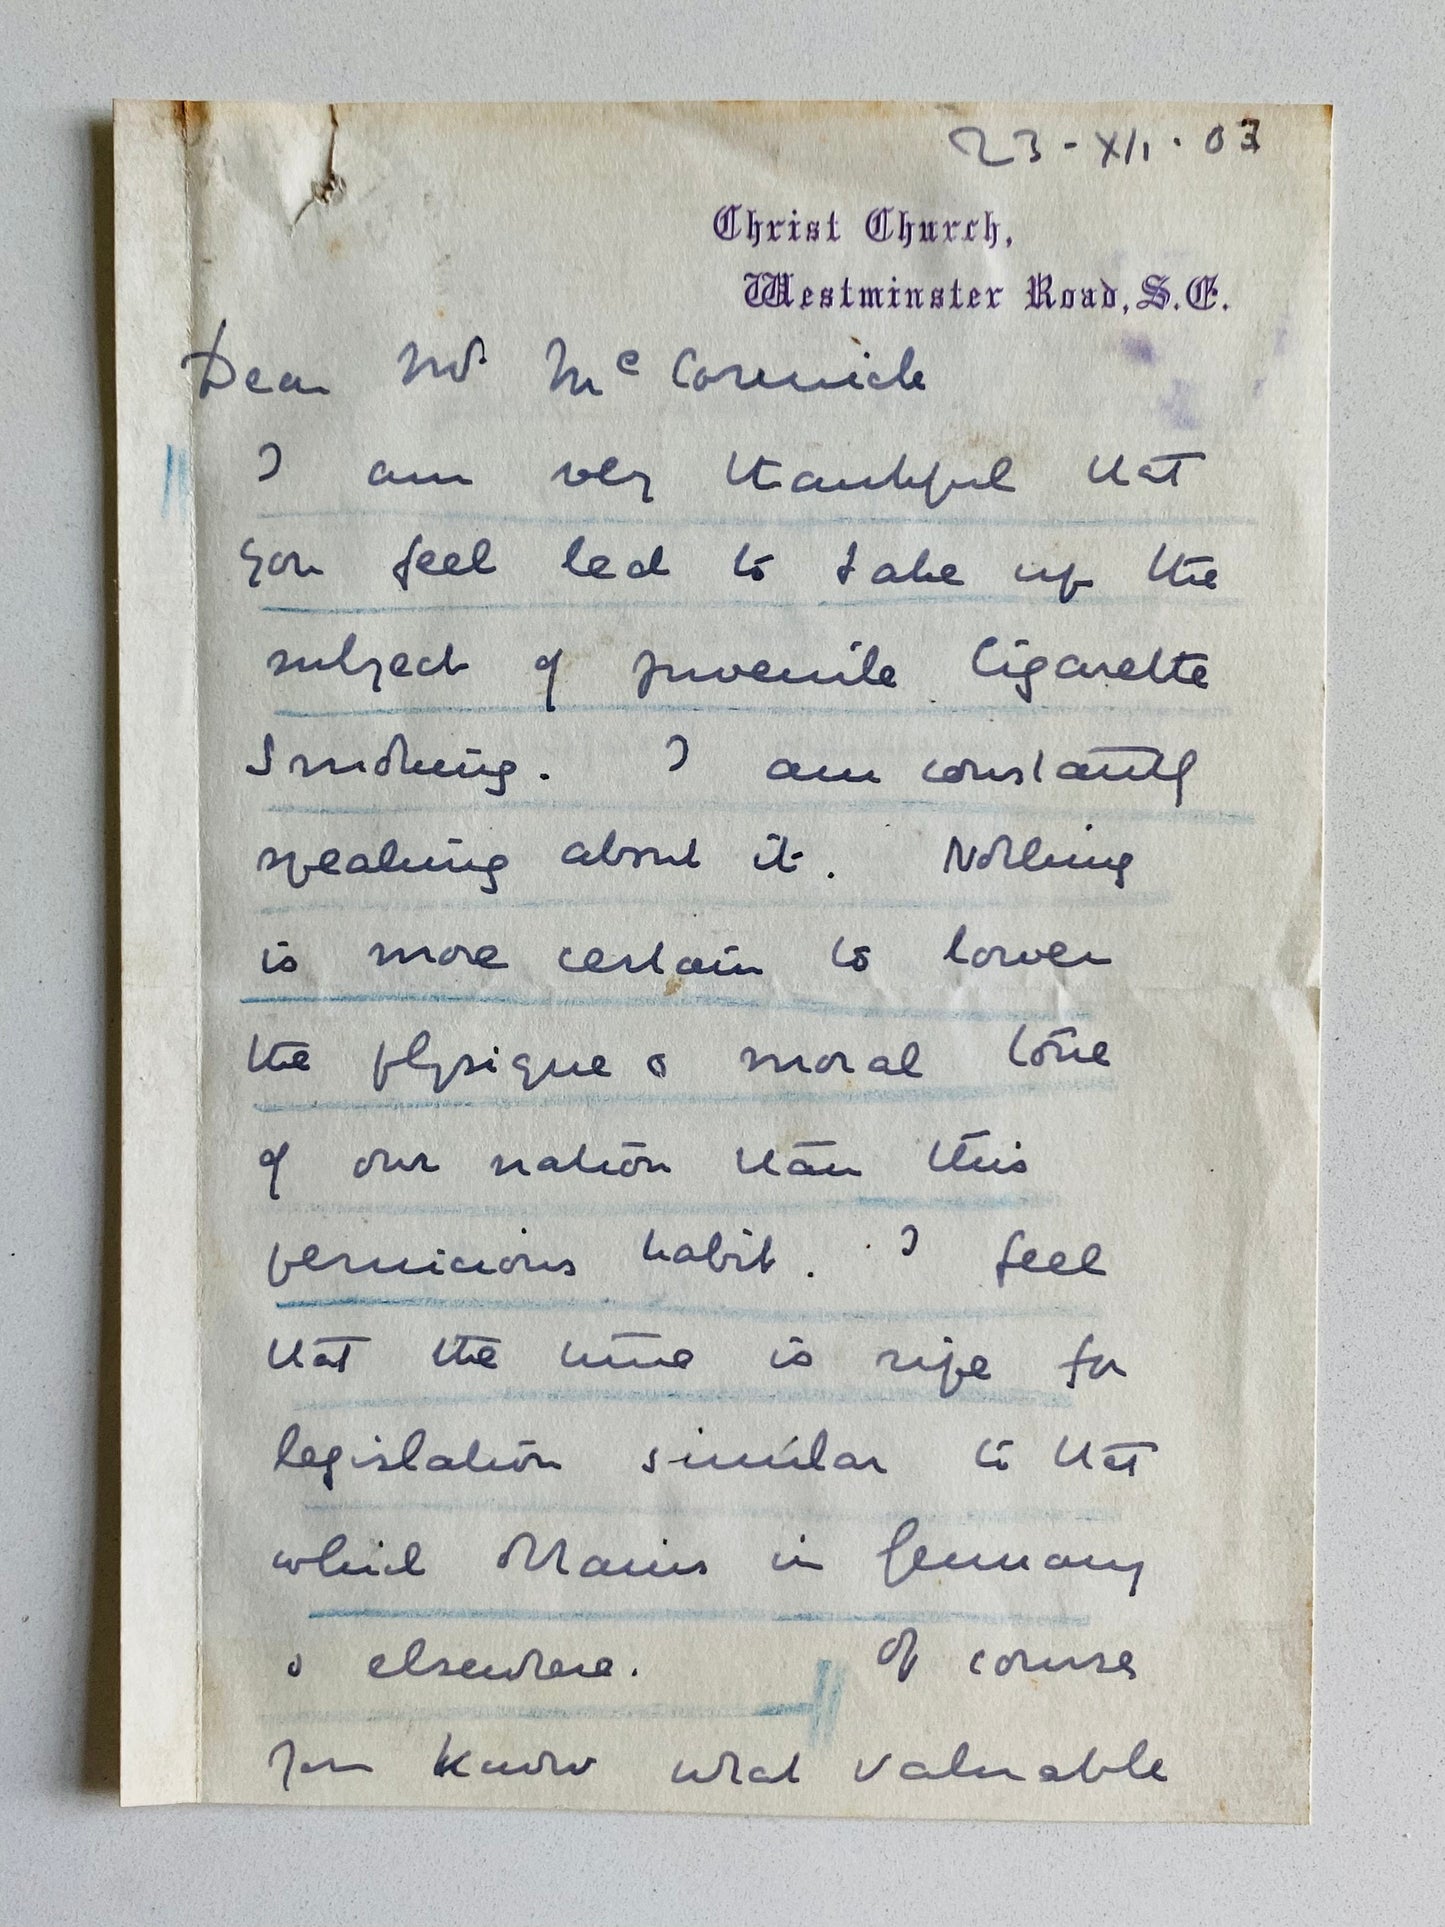 23-XII.03
Christ Church,
Westminster Road, S.E.
Dear Mr McCormick
I am very thankful that
you feel led to take up the
subject of juvenile Cigarette
Smoking. I am constantly
speaking about it. Nothing
is more certain to lower
the physique & moral tone
of our nation than this
pernicious habit. I feel
that the time is ripe for
legislation similar to that
which obtains in Germany
& elsewhere. Of course
you know what valuable